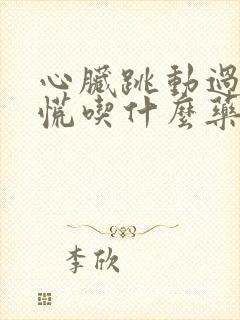 心臟跳動過
慌喫什麼藥
李欣